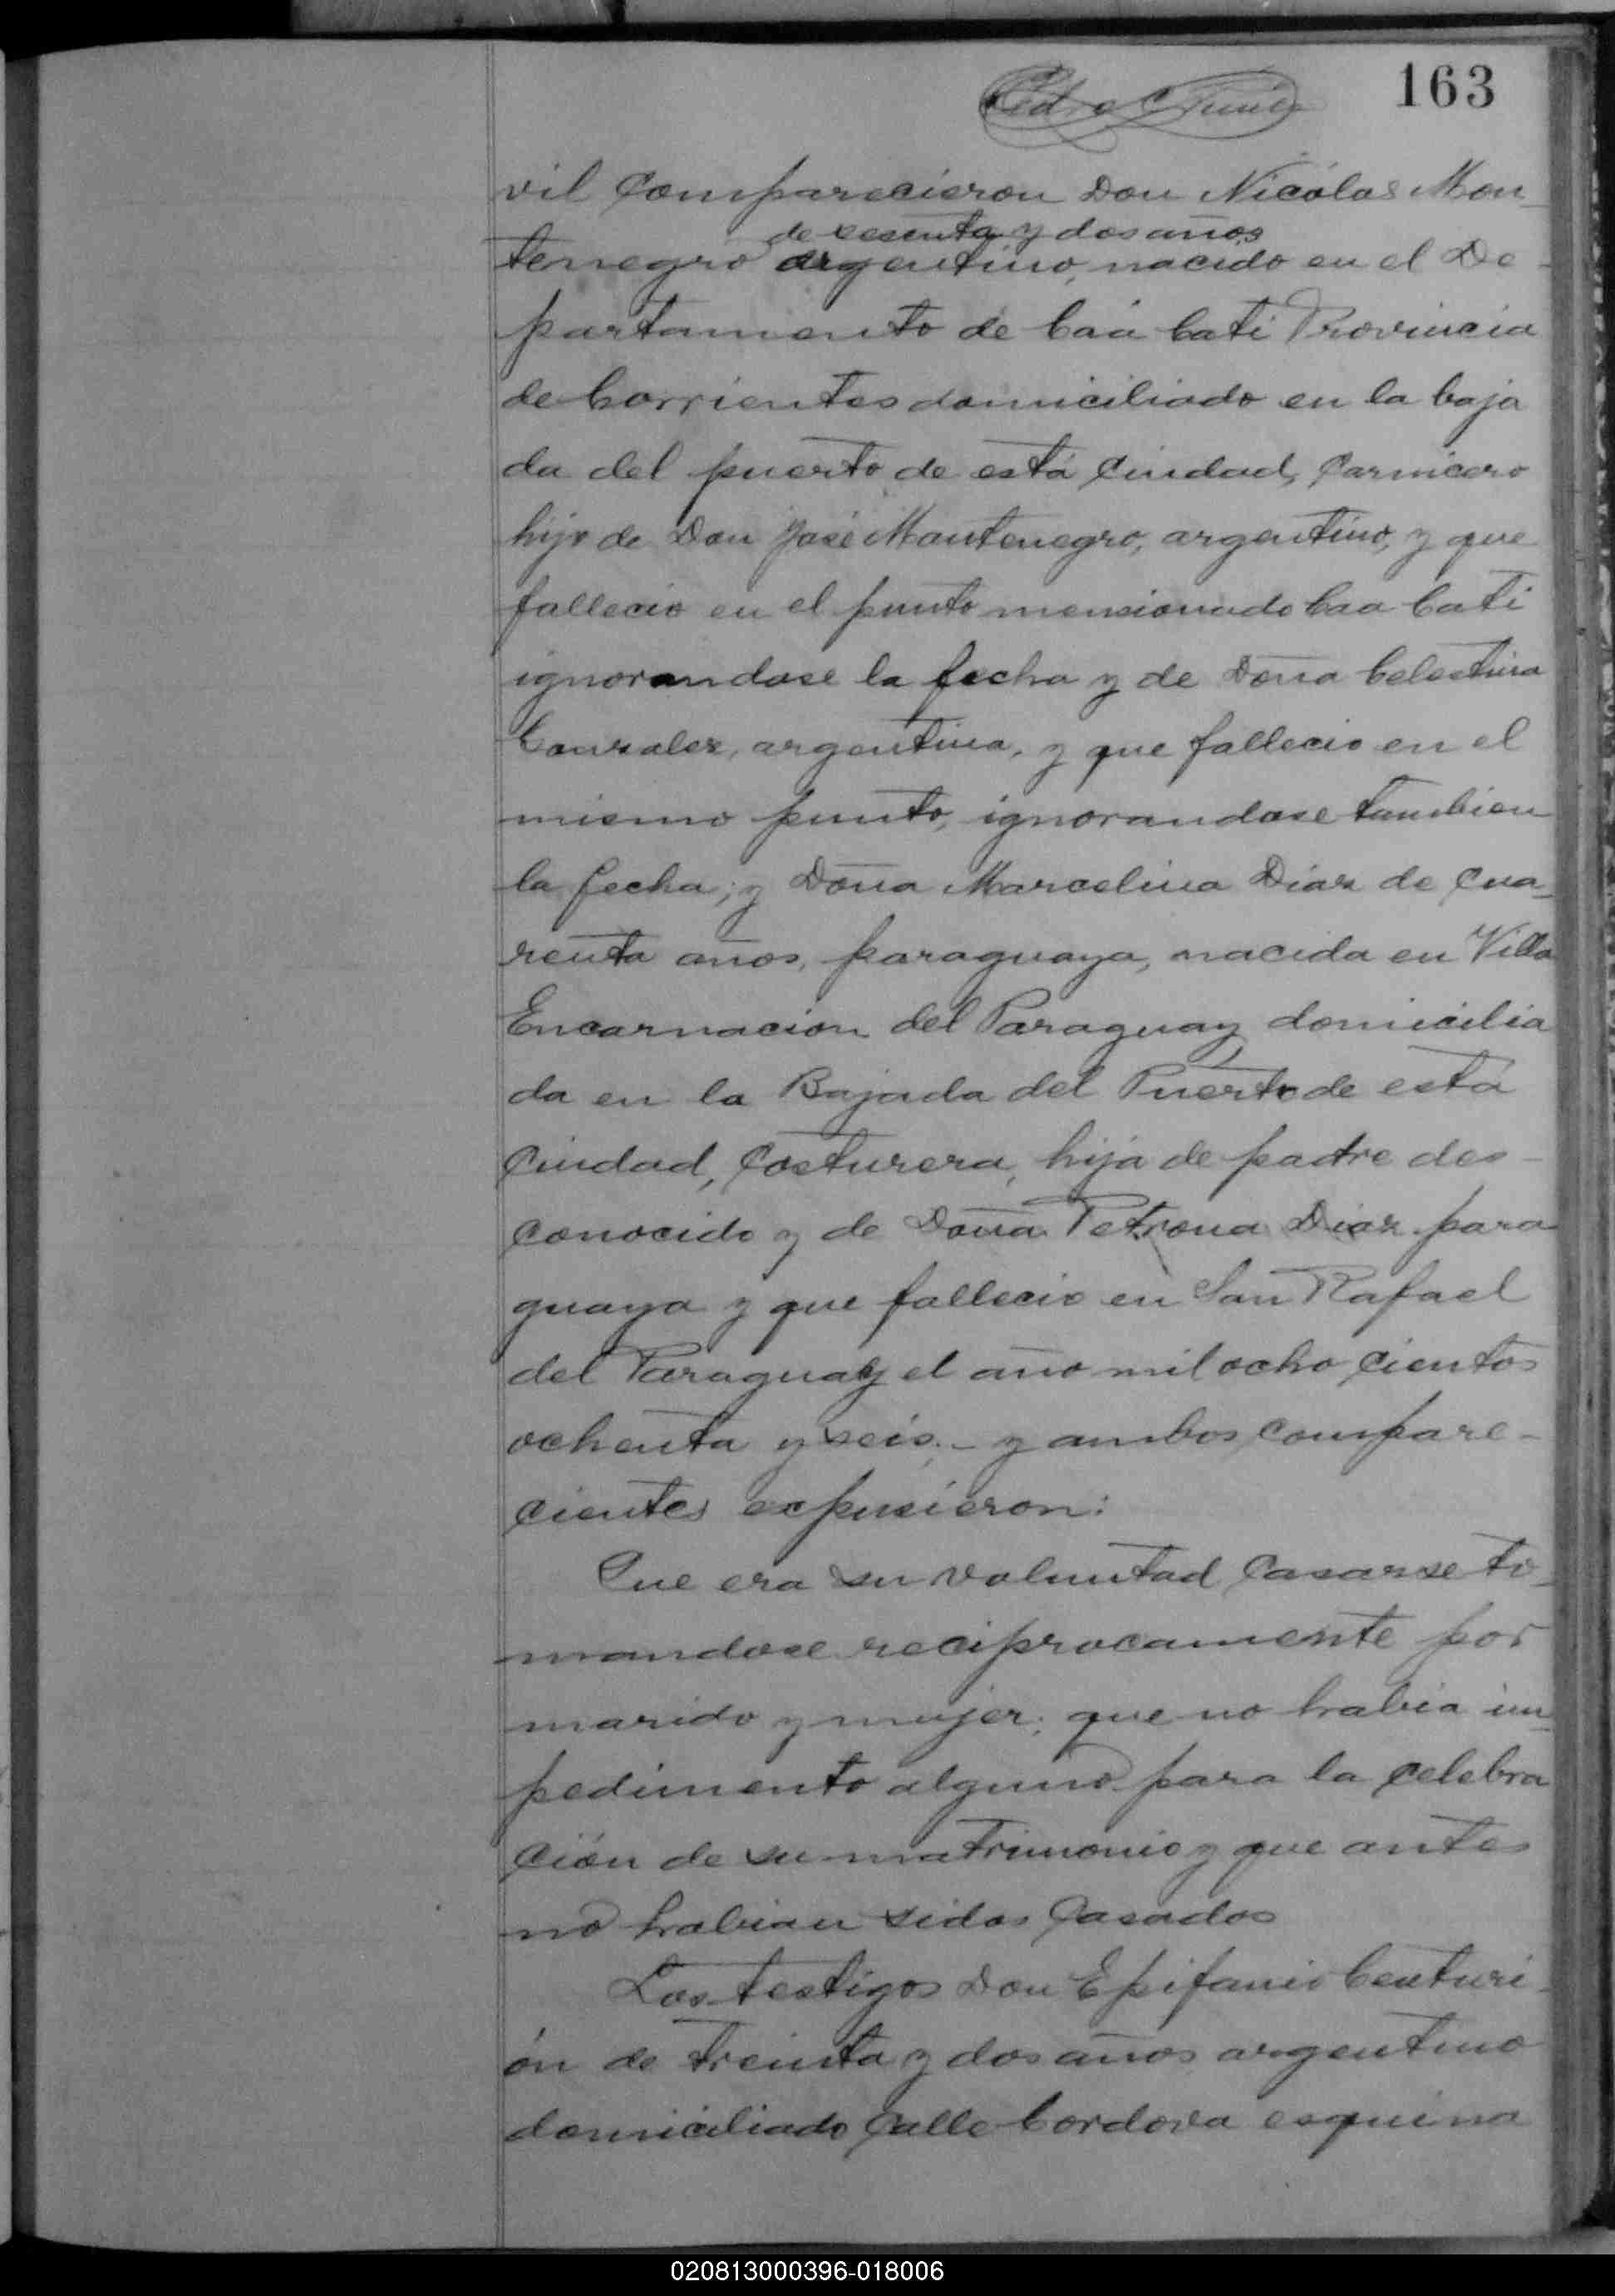 163
vil Comparecieron Don Nicólas Mon_
de sesenta y dos años
tenegro argentino, nacido en el De-
partamento de Caá Cati Provincia
de Corrientes domiciliado en la baja
da del puerto de está Ciudad, Carnicero
hijo de Don José Montenegro, argentino, y que
fallecio en el punto mensionado Caa Cati
ignorandose la fecha y de Doña Celestina
Gonzalez, argentina, y que fallecio en el
mismo punto, ignorandose tambien
la fecha; y Doña Marcelina Diaz de Cua_
renta años, paraguaya, nacida en Villa
Encarnacion del Paraguay domicilia
da en la Bajada del Puerto de está
Ciudad, Costurera, hija de padre des-
conocido y de Doña Petrona Diaz para
guaya y que fallecio en San Rafael
del Paraguay el año mil ocho cientos
ochenta y seis._ y ambos compare-
cientes expusieron:
Que era su voluntad Casarse to_
mandose reciprocamente por
marido y mujer; que no habia im_
pedimento alguno para la celebra
ción de su matrimonio y que antes
no habian sidos Casados
Los testigos Don Epifanio Centuri_
ón de treinta y dos años argentino
domiciliado Calle Cordova esquina
020813000396-018006